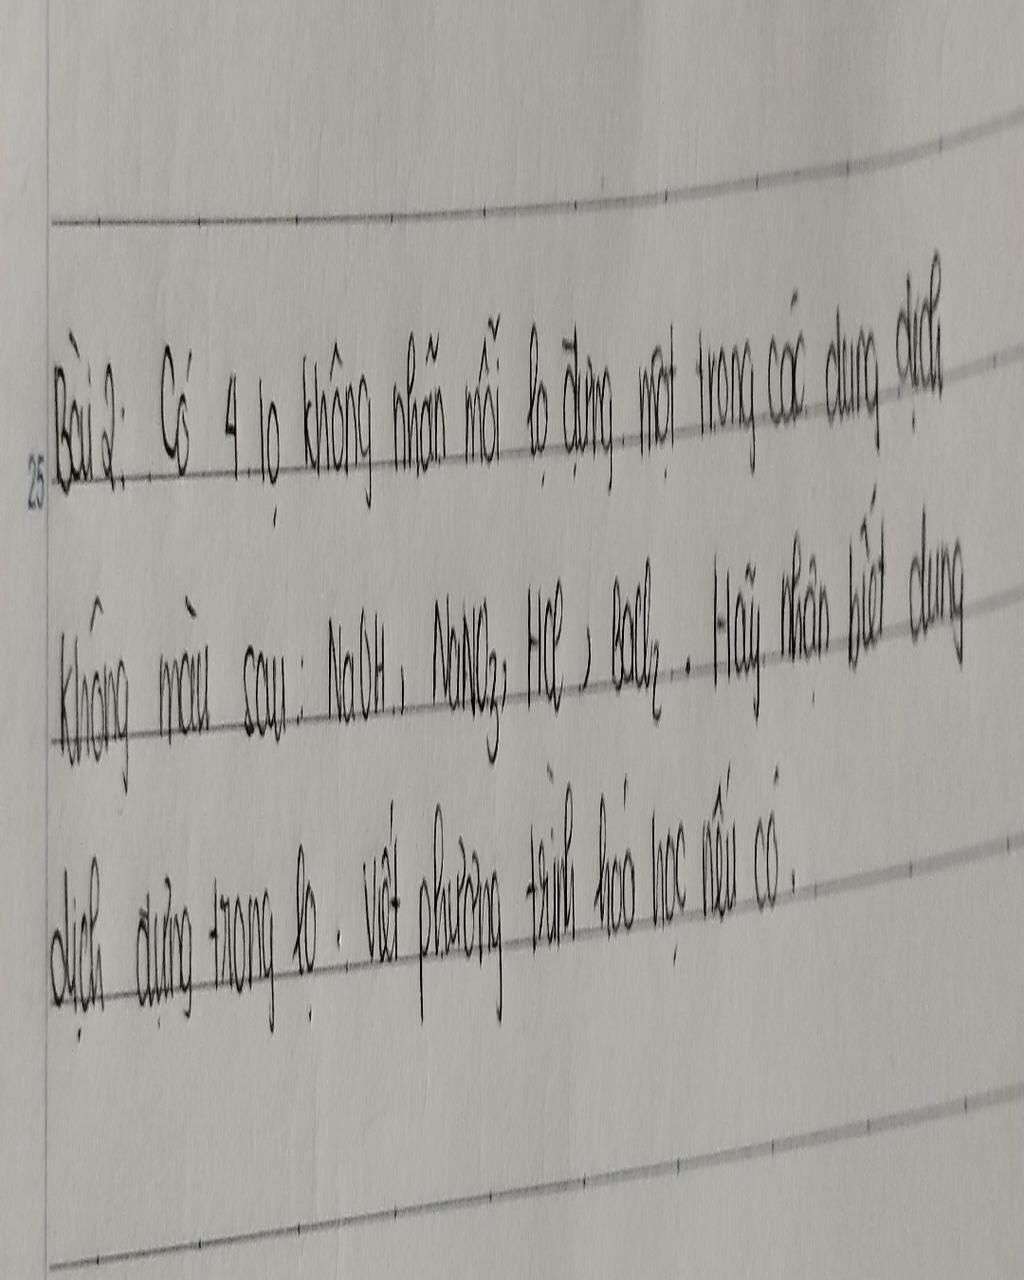 Bài 2: Có 4 lọ không nhãn mỗi lọ đựng một trong các dung dịch
25
không màu sau: NaOH, NaNO3, HCl, BaCl2. Hãy nhận biết dung
dịch đựng trong lọ. Viết phương trình hóa học nếu có.